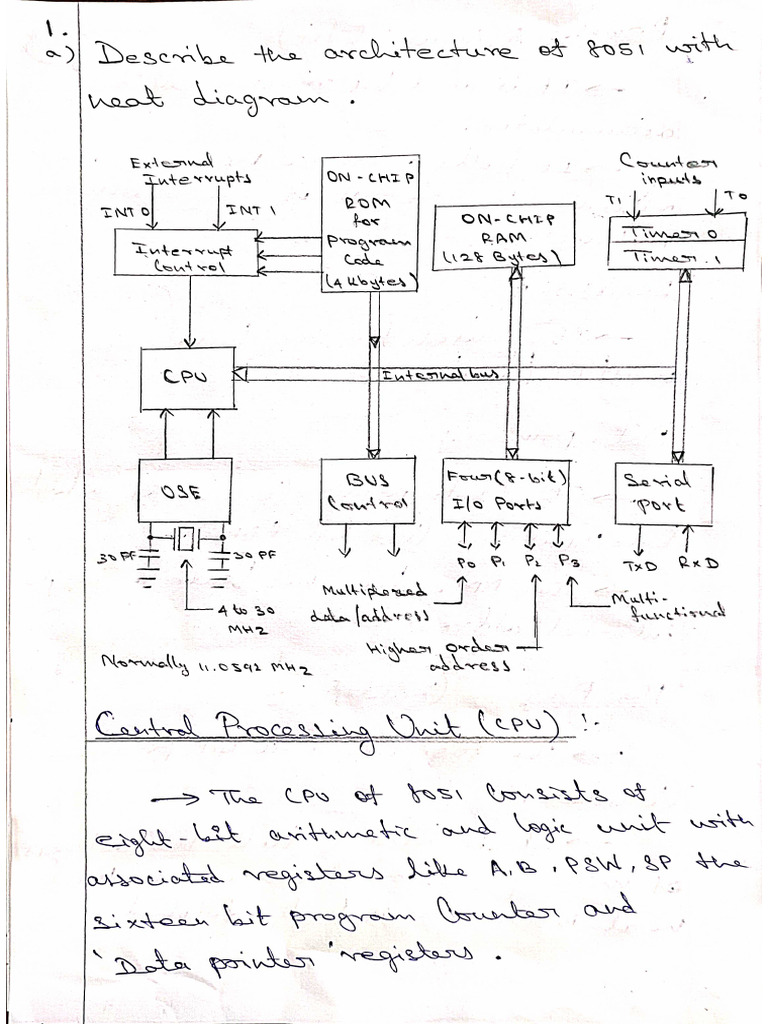 1.
a) Describe the architecture of 8051 with
neat diagram.
External
Interrupts
INT 0
INT 1
Interrupt
Control
ON-CHIP
ROM
for
program
code
(4 Kbytes)
ON-CHIP
RAM
(128 Bytes)
Counter
inputs
T1
T0
Timer 0
Timer 1
CPU
Internal bus
OSE
30 PF
30 PF
4 to 30
MHZ
Normally 11.0592 MHZ
BUS
Control
Four (8-bit)
I/O Ports
P0 P1 P2 P3
Multiplexed
data/address
Higher Order
address
Serial
Port
TXD RXD
Multi-
functional
Central Processing Unit (CPU) :-
→ The CPU of 8051 Consists of
eight-bit arithmetic and logic unit with
associated registers like A, B, PSW, SP the
sixteen bit program Counter and
'Data pointer' registers.